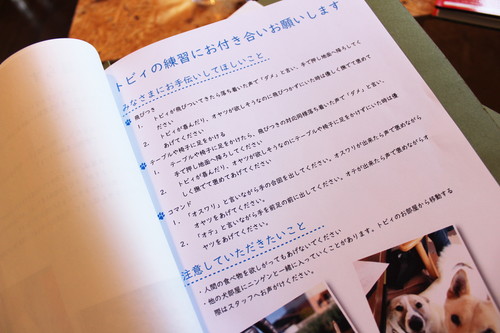 トビィの練習にお付き合いお願いします
みなさまにお手伝いしてほしいこと
飛びつき
1. トビィが飛びついてきたら落ち着いた声で「ダメ」と言い、手で押し地面へ降ろしてく
ださい
2. トビィが喜んだり、オヤツが欲しそうなのに飛びつかずにいた時は優しく撫でて褒めて
あげてください
テーブルや椅子に足をかける
1. テーブルや椅子に足をかけたら、飛びつきの対応同様落ち着いた声で「ダメ」と言い、
手で押し地面へ降ろしてください
2. トビィが喜んだり、オヤツが欲しそうなのにテーブルや椅子に足をかけずにいた時は優
しく撫でて褒めてあげてください
コマンド
1. 「オスワリ」と言いながら手の合図を出してください。オスワリが出来たら声で褒めながら
オヤツをあげてください。
2. 「オテ」と言いながら手を前足の前に出してください。オテが出来たら声で褒めながらオ
ヤツをあげてください。
注意していただきたいこと
・人間の食べ物を欲しがってもあげないでください
・他の犬部屋にニンゲンと一緒に入っていくことがあります。トビィのお部屋から移動する
際はスタッフへお声がけください。